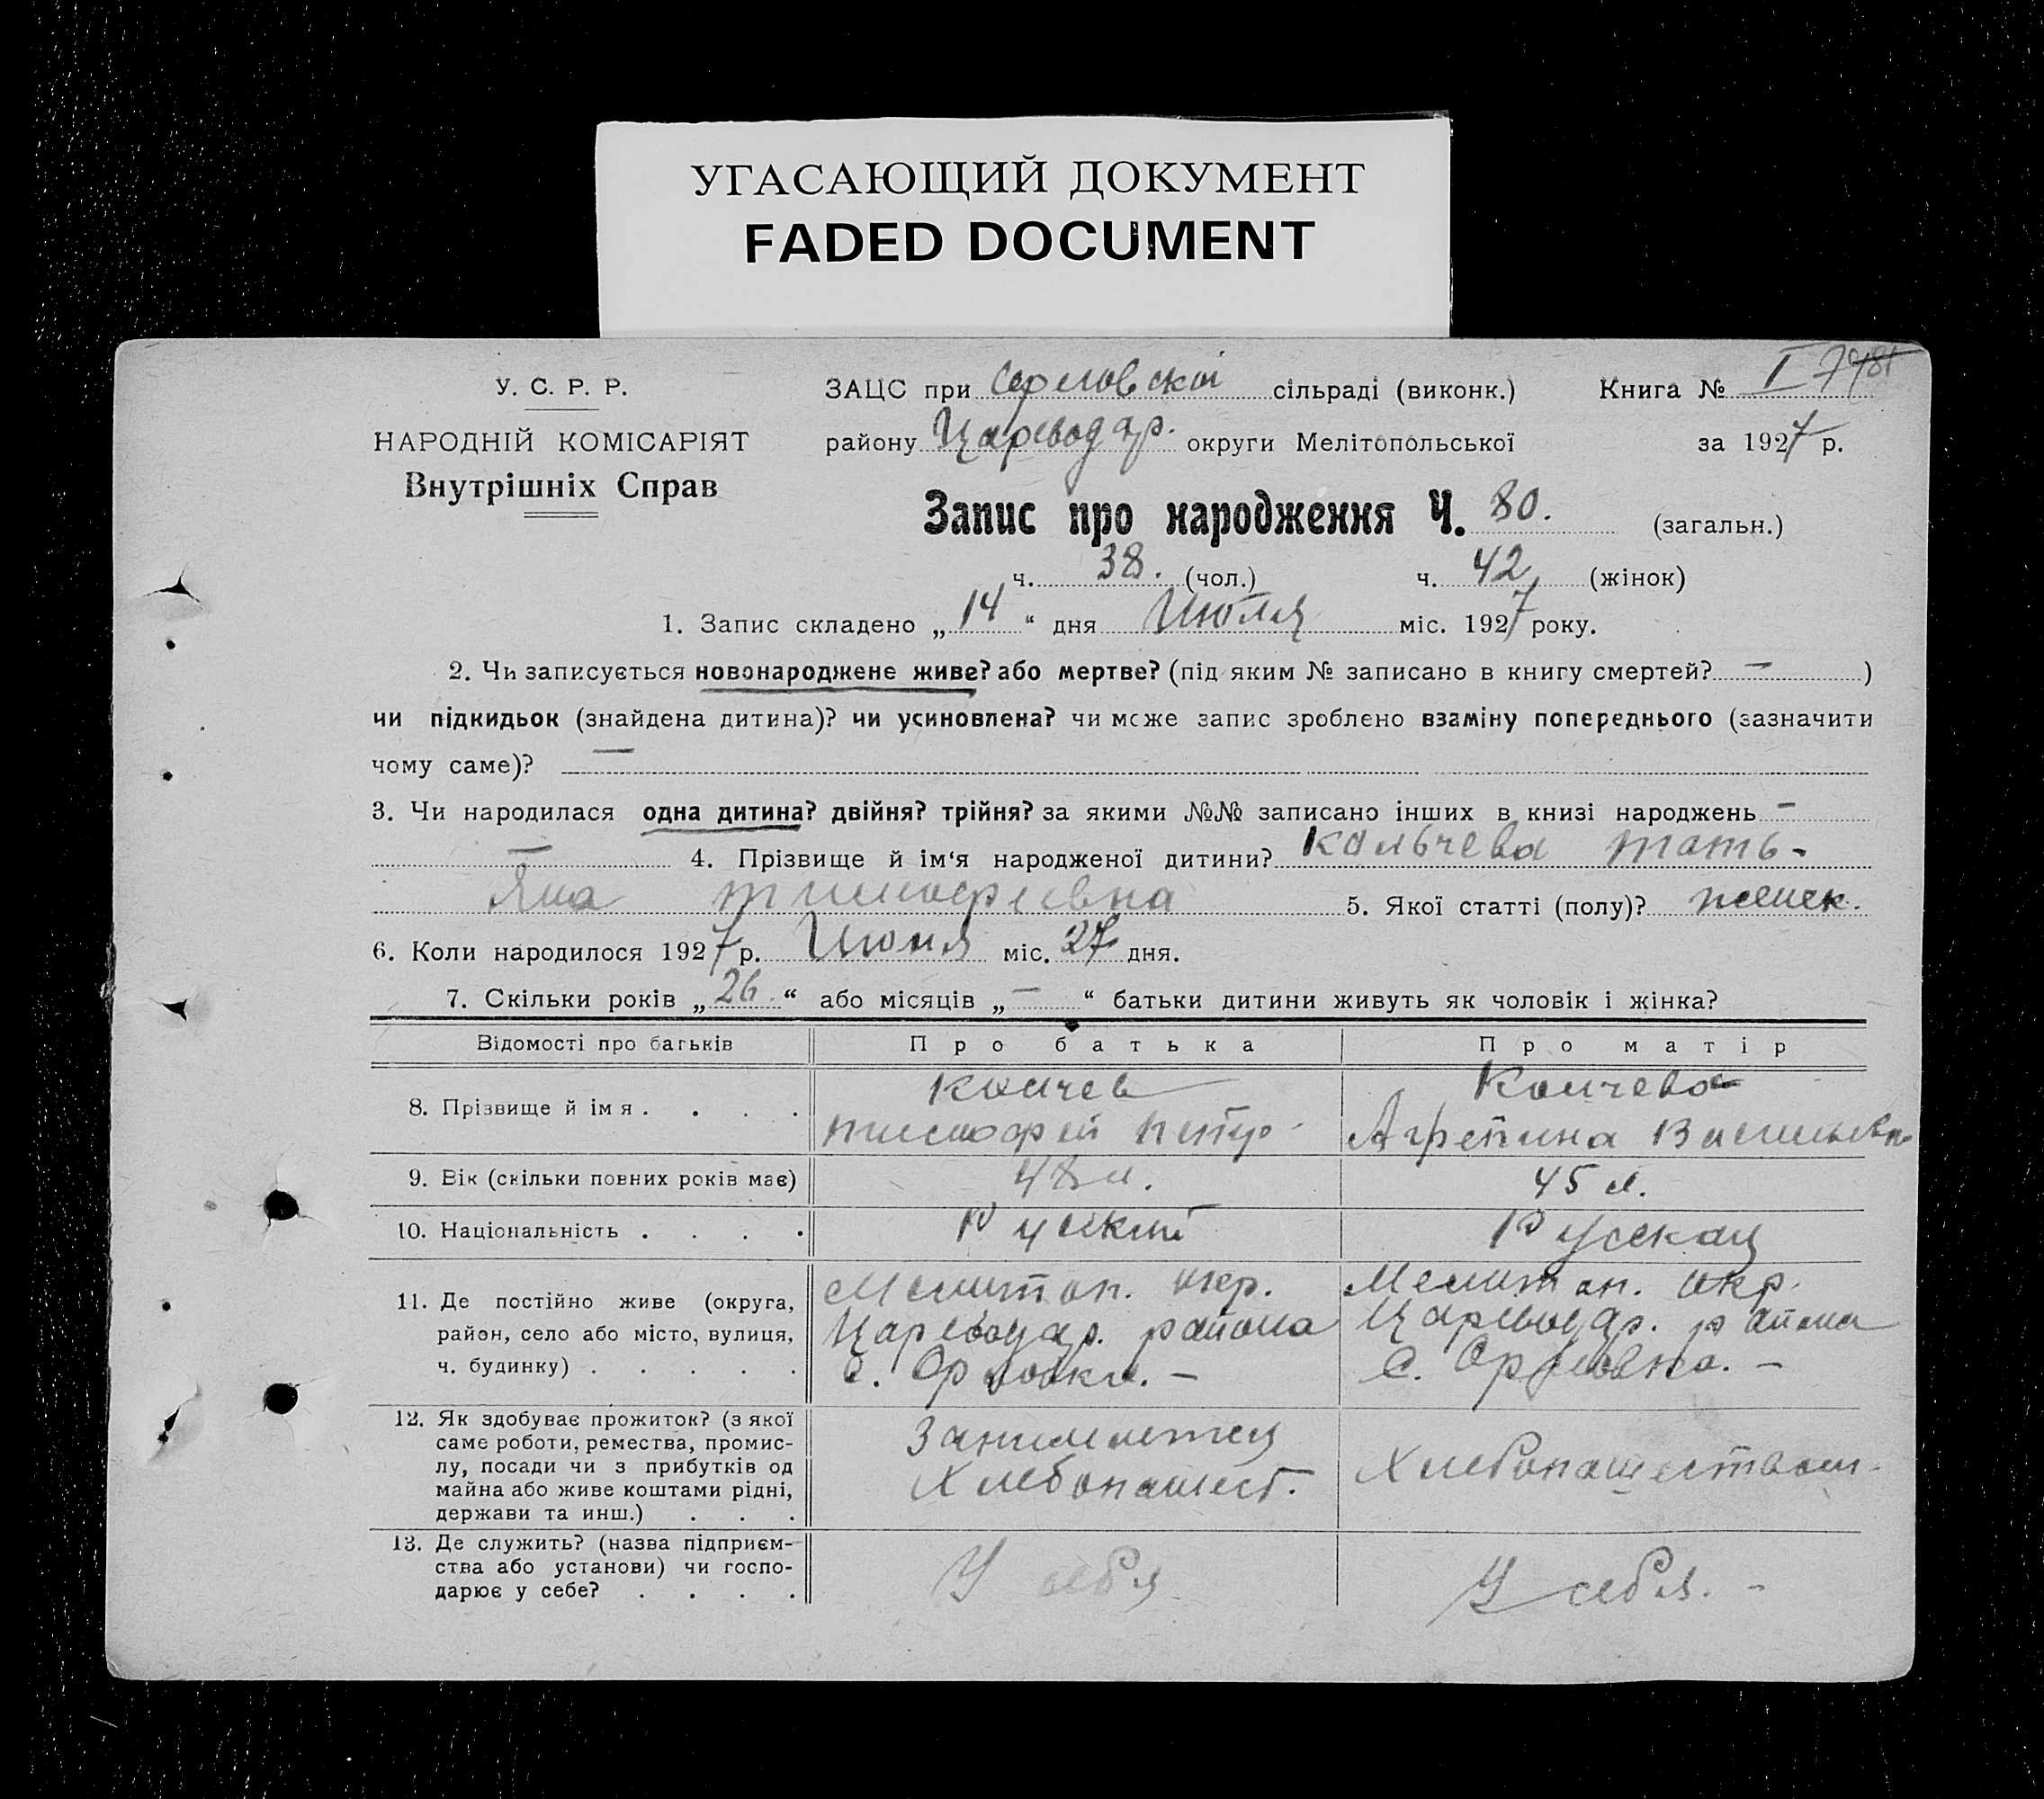 УГАСАЮЩИЙ ДОКУМЕНТ
FADED DOCUMENT
У. С. Р. Р.
НАРОДНІЙ КОМІСАРІЯТ
Внутрішніх Справ
ЗАЦС при сільраді (виконк.) Книга № I
району Цареводар. округи Мелітопольської за 1927 р.
Запис про народження Ч. 80. (загальн.)
ч. 38. (чол.) ч. 42 (жінок)
1. Запис складено „ 14 “ дня Июля міс. 1927 року.
2. Чи записується новонароджене живе? або мертве? (під яким № записано в книгу смертей? — )
чи підкидьок (знайдена дитина)? чи усиновлена? чи може запис зроблено взаміну попереднього (зазначити
чому саме)? —
3. Чи народилася одна дитина? двійня? трійня? за якими №№ записано інших в книзі народжень –
— 4. Прізвище й ім‘я народженої дитини? Кальчева Тать-
яна Тимофеевна 5. Якої статті (полу)? женск.
6. Коли народилося 1927 р. Июня міс. 27 дня.
7. Скільки років „ 26 “ або місяців „ — “ батьки дитини живуть як чоловік і жінка?
Відомості про батьків Про батька Про матір
8. Прізвище й імя . . . . Калчев Калчева
Тимофей Петро- Агрепина Васильевн
9. Вік (скільки повних років має) 48 л. 45 л.
10. Національність . . . . Руский Русская
11. Де постійно живе (округа, Мелитоп. окр. Мелитоп. окр.
район, село або місто, вулиця, Цареводар. района Цареводар. района
ч. будинку) . . . . . с. Орловка. — с. Орловка. —
12. Як здобуває прожиток? (з якої
саме роботи, ремества, промис-
лу, посади чи з прибутків од
майна або живе коштами рідні,
держави та инш.) . . .
Занимается
Хлебопашест. Хлебопашеством.
13. Де служить? (назва підприєм-
ства або установи) чи госпо-
дарює у себе? . . . .
У себя У себя. -